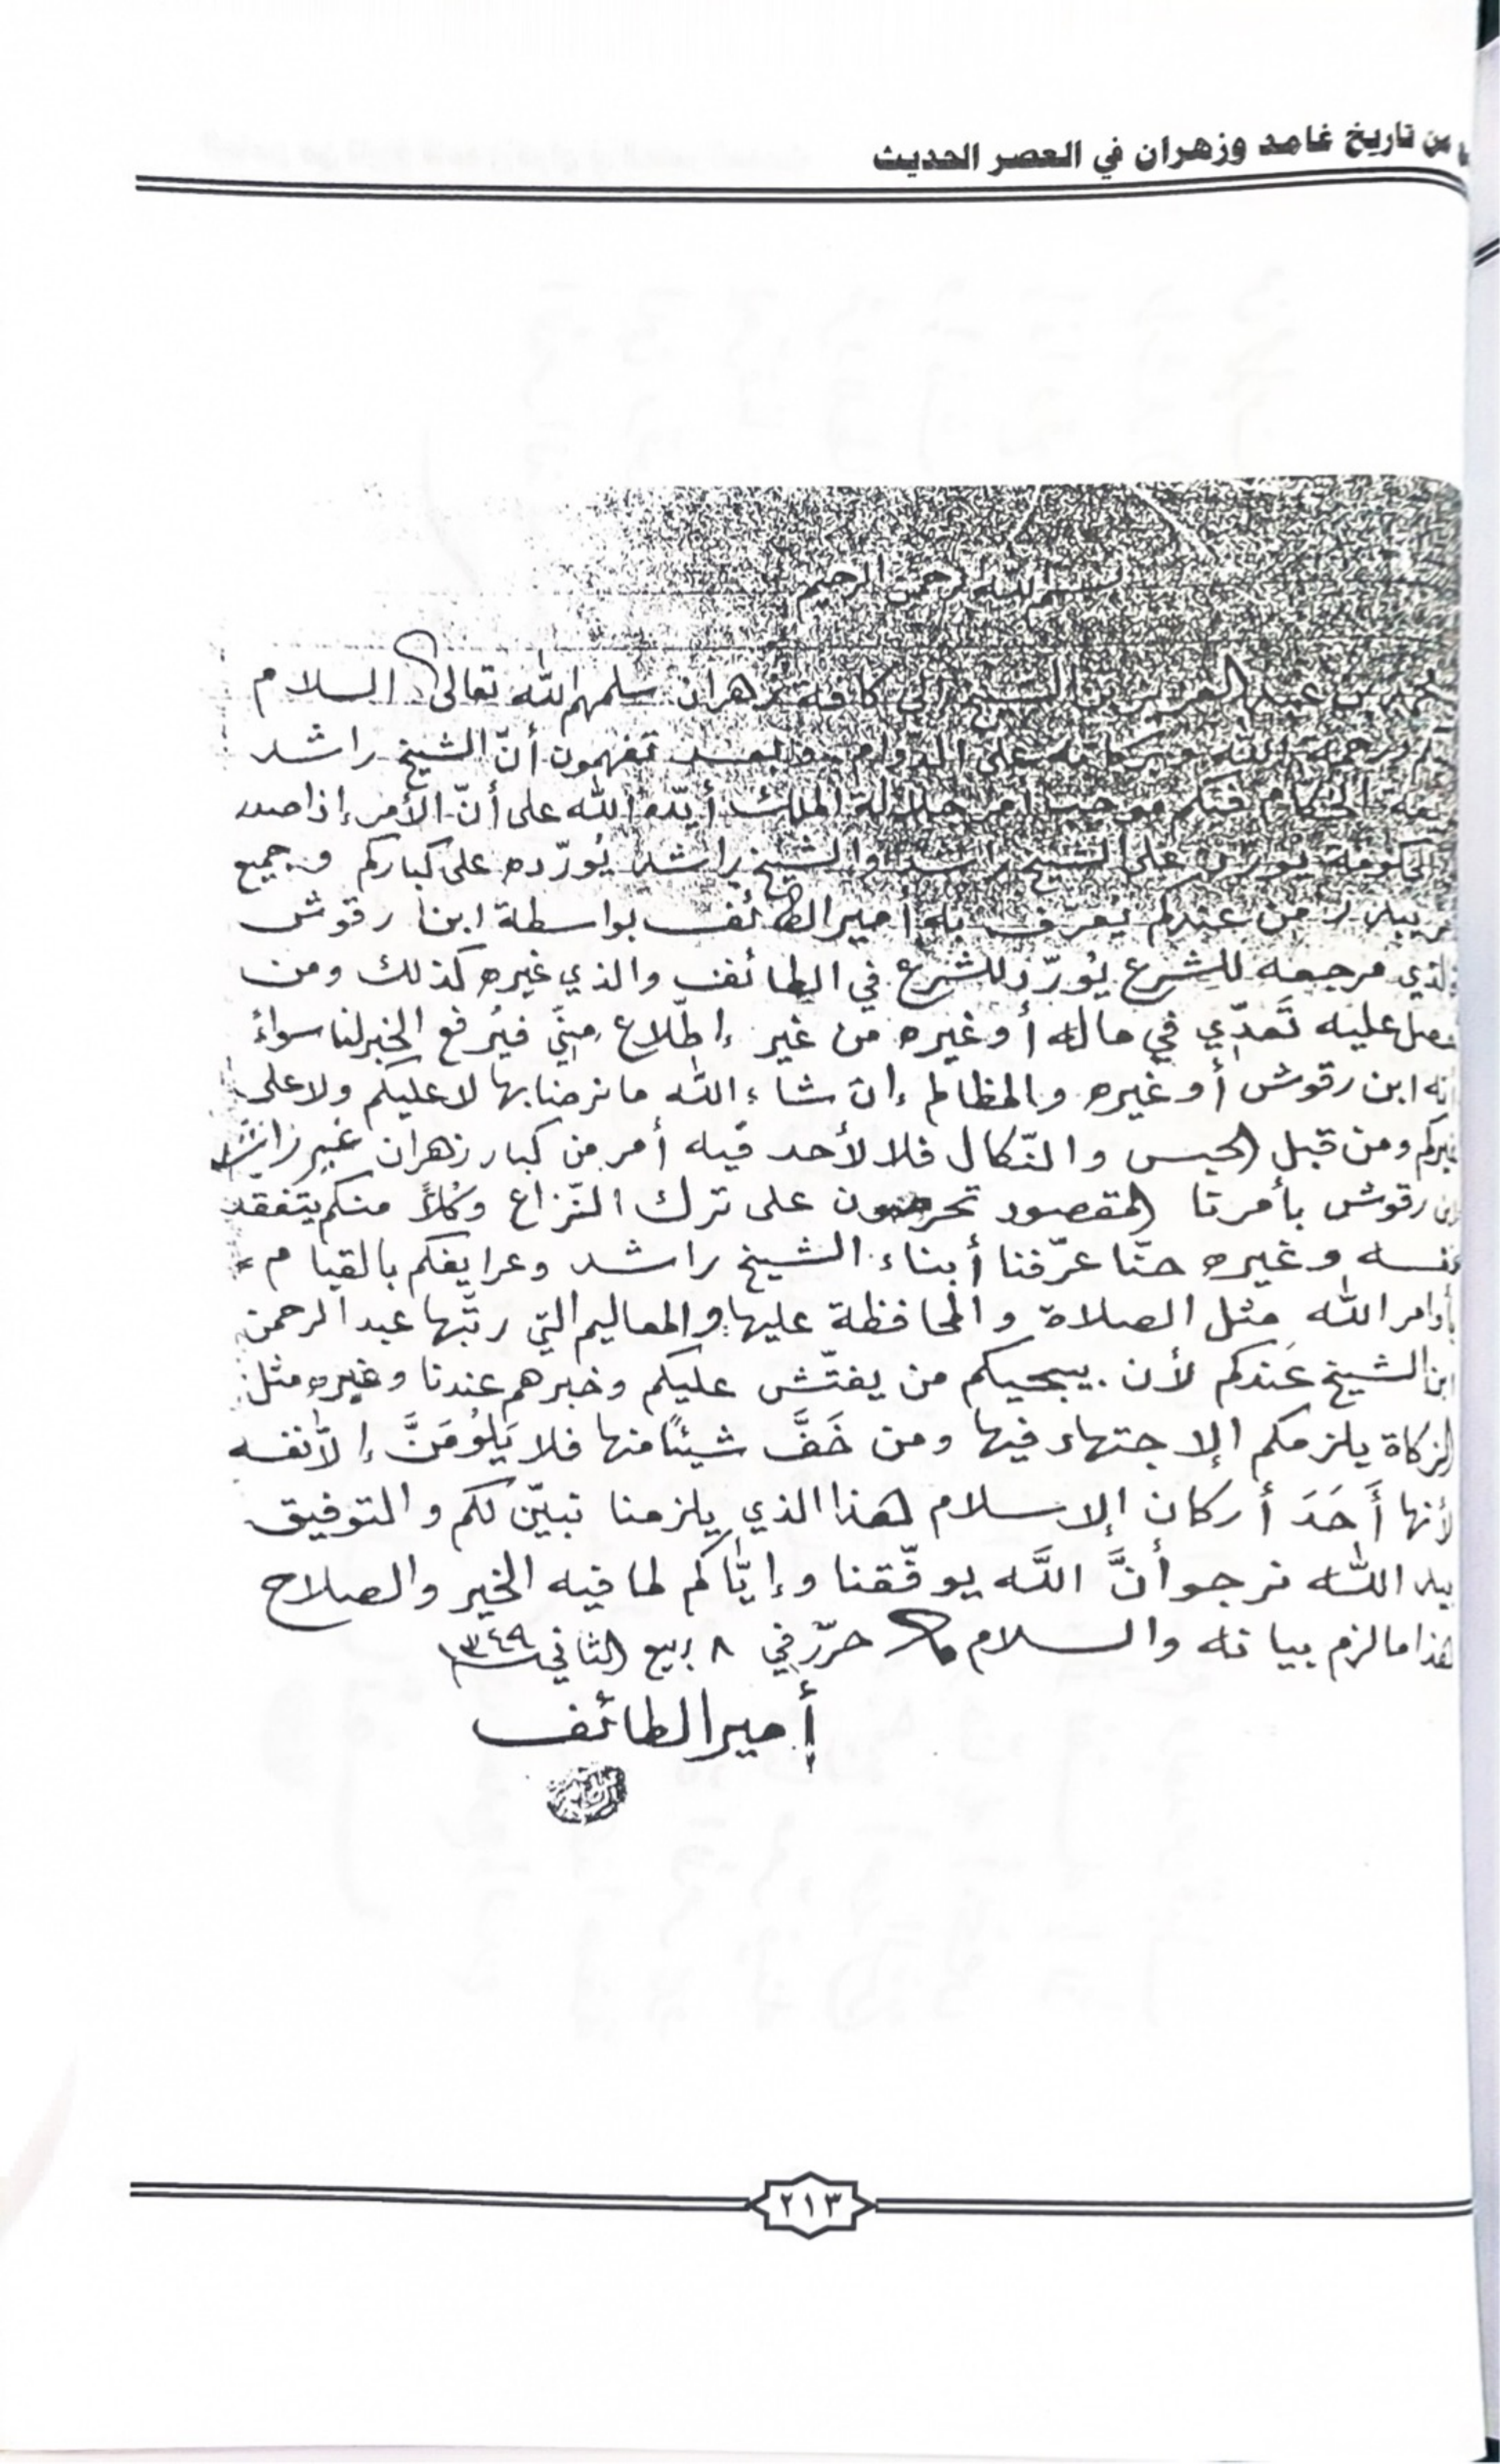 من تاريخ غامد وزهران في العصر الحديث
بسم الله الرحمن الرحيم
بن عبد العزيز بن الشيخ إلى كافة زهران سلمهم الله تعالى السلام
ورحمة الله وبركاته على الدوام وبعد تفهمون أنّ الشيخ راشد
الحكام فتكم موجب أمر جلالة الملك أيّده الله على أنّ الأمر إذا صدر
الحكومة يُورّد على الشيخ راشد والشيخ راشد يُورّده على كباركم وجميع
من عندكم يُعرّف به أمير الطائف بواسطة ابن رقوش
الذي مرجعه للشرع يُورّد للشرع في الطائف والذي غيره كذلك ومن
حصل عليه تَعدّي في حاله أو غيره من غير إطّلاع منّي فيُرفع الخبر لنا سواءً
إنه ابن رقوش أو غيره والمظالم إن شاء الله ما نرضا بها لا عليكم ولا على
غيركم ومن قبل الحبس والنّكال فلا لأحد فيه أمر من كبار زهران غير راشد
بن رقوش بأمرنا المقصود تحرصون على ترك النّزاع وكلاً منكم يتفقّد
نفسه وغيره حنّا عرّفنا أبناء الشيخ راشد وعرايفكم بالقيام
بأوامر الله مثل الصلاة والمحافظة عليها والمعاليم التي رتّبها عبد الرحمن
ابن الشيخ عندكم لأن يبجيكم من يفتّش عليكم وخبرهم عندنا وغيره مثل
الزكاة يلزمكم الإجتهاد فيها ومن خَفَّ شيئاً منها فلا يَلُومَنَّ إلاّ نفسه
لأنها أَحَدَ أركان الإسلام هذا الذي يلزمنا نبيّن لكم والتوفيق
بيد الله نرجو أنَّ اللَّه يوفّقنا وإيّاكم لما فيه الخير والصلاح
هذا ما لزم بيانه والسلام حرّر في ٨ ربيع الثاني ١٣٤٩
أمير الطائف
٢١٣